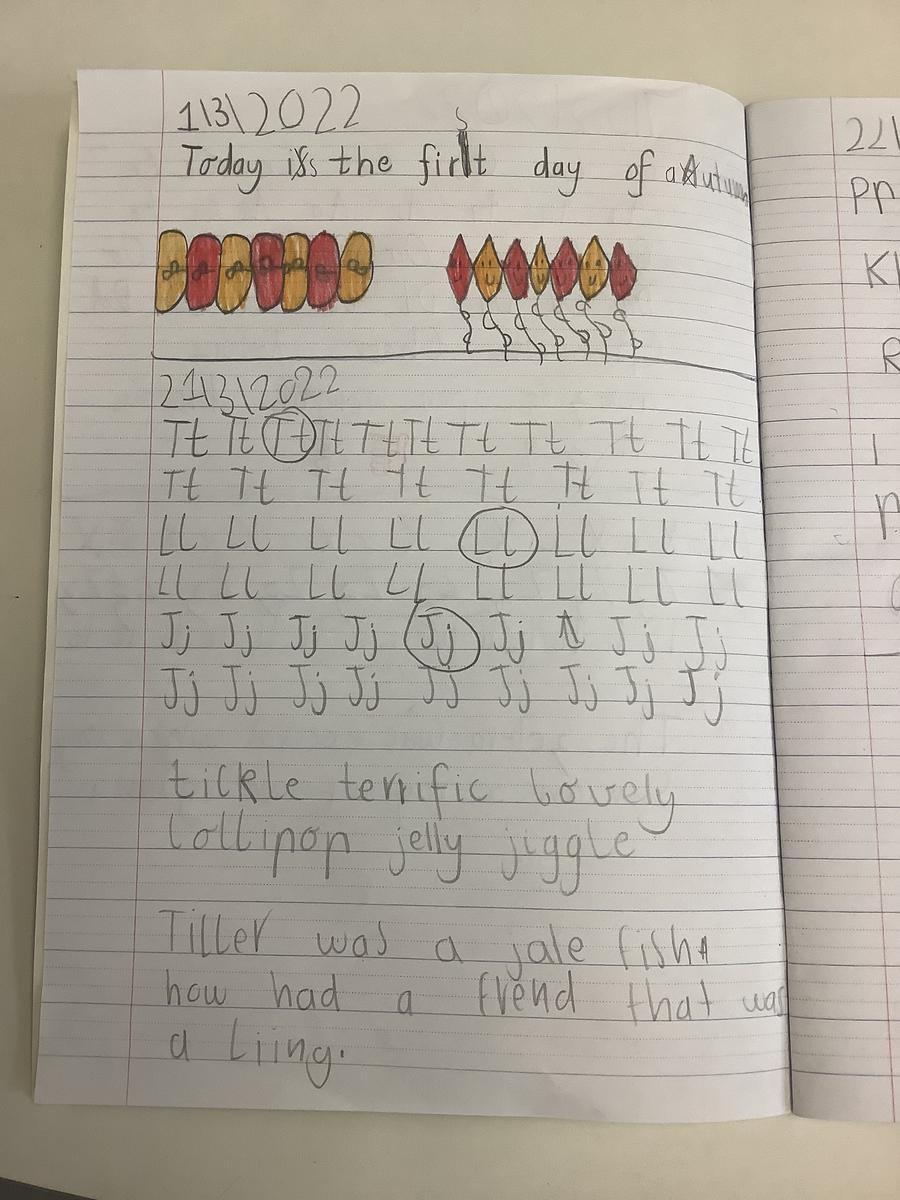 1\3\2022
Today is the first day of autumn
21\3\2022
Tt Tt Tt Tt Tt Tt Tt Tt Tt Tt Tt
Tt Tt Tt Tt Tt Tt Tt Tt
Ll Ll Ll Ll Ll Ll Ll Ll
Ll Ll Ll Ll Ll Ll Ll Ll
Jj Jj Jj Jj Jj Jj Jj Jj
Jj Jj Jj Jj Jj Jj Jj Jj Jj
tickle terrific lovely
lollipop jelly jiggle
Tiller was a jale fish
how had a frend that was
a Liing.
2\
Pp
K
R